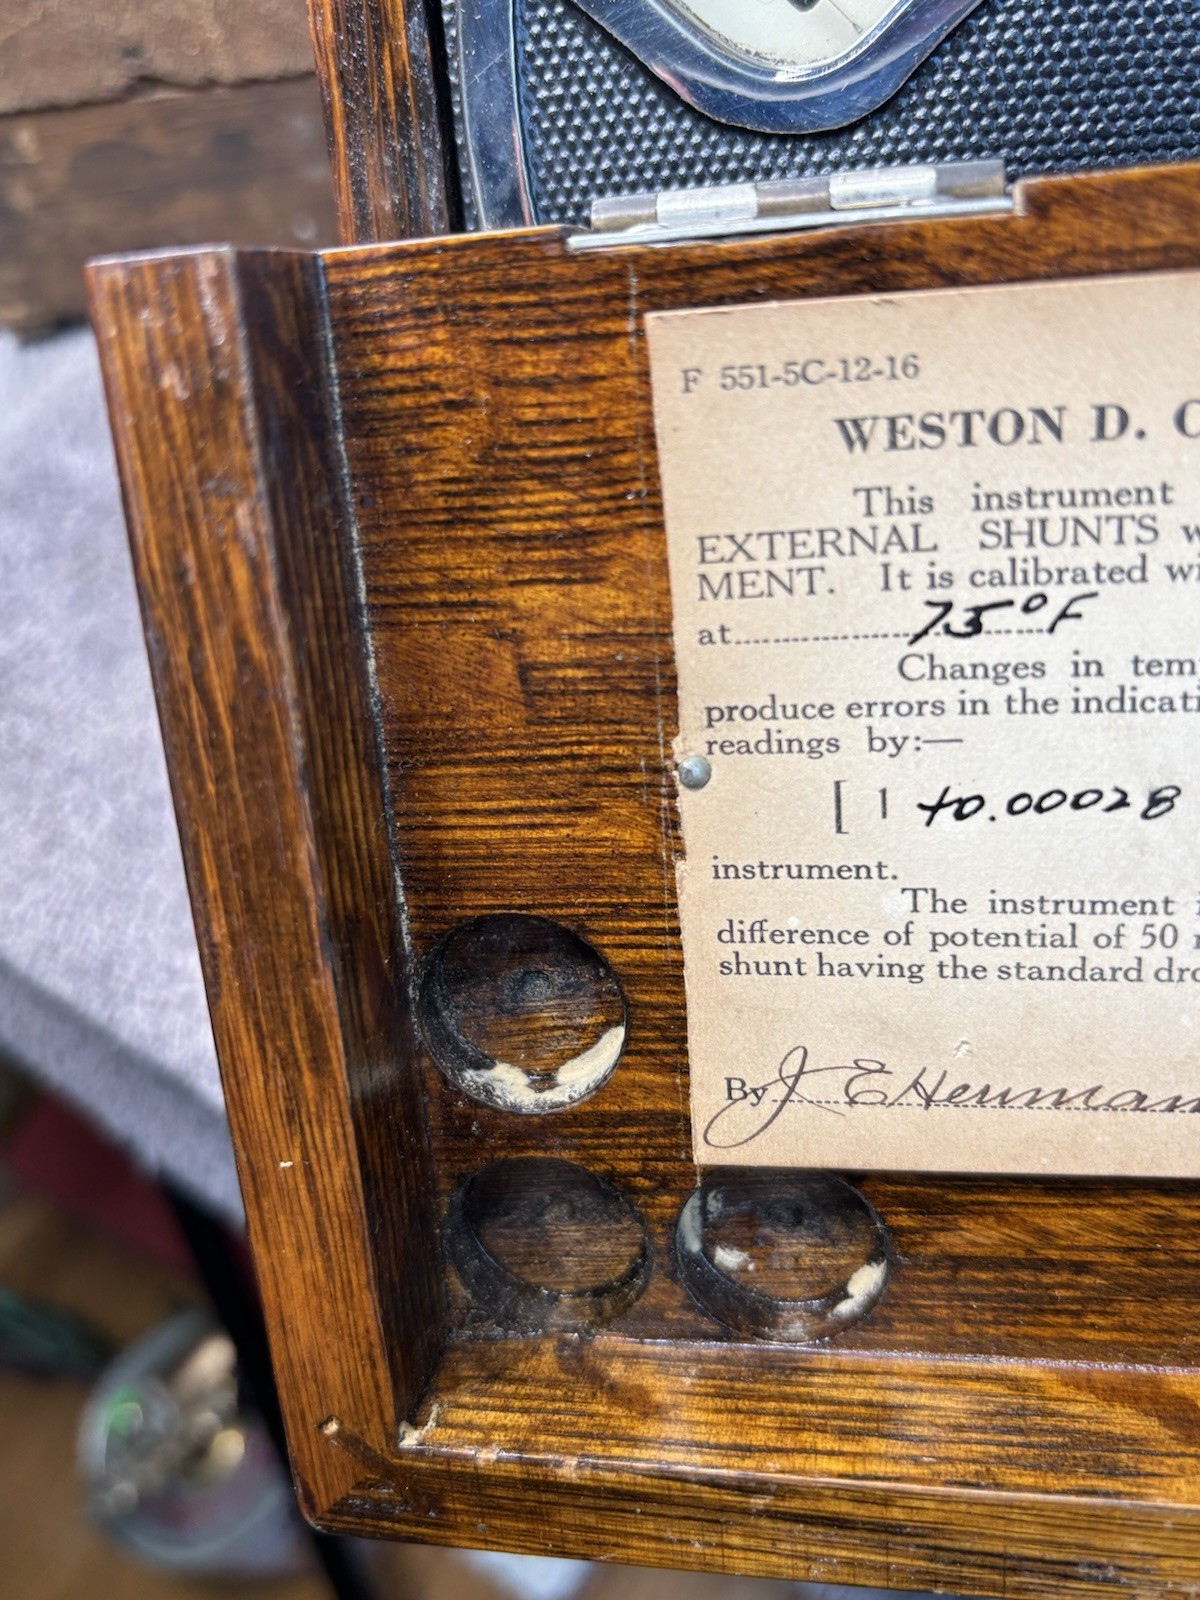 F 551-5C-12-16
WESTON D. C
This instrument
EXTERNAL SHUNTS w
MENT. It is calibrated wi
at 75°F
Changes in temp
produce errors in the indicati
readings by:—
[ 1 +0.00028
instrument.
The instrument
difference of potential of 50
shunt having the standard dro
By J. E Herman